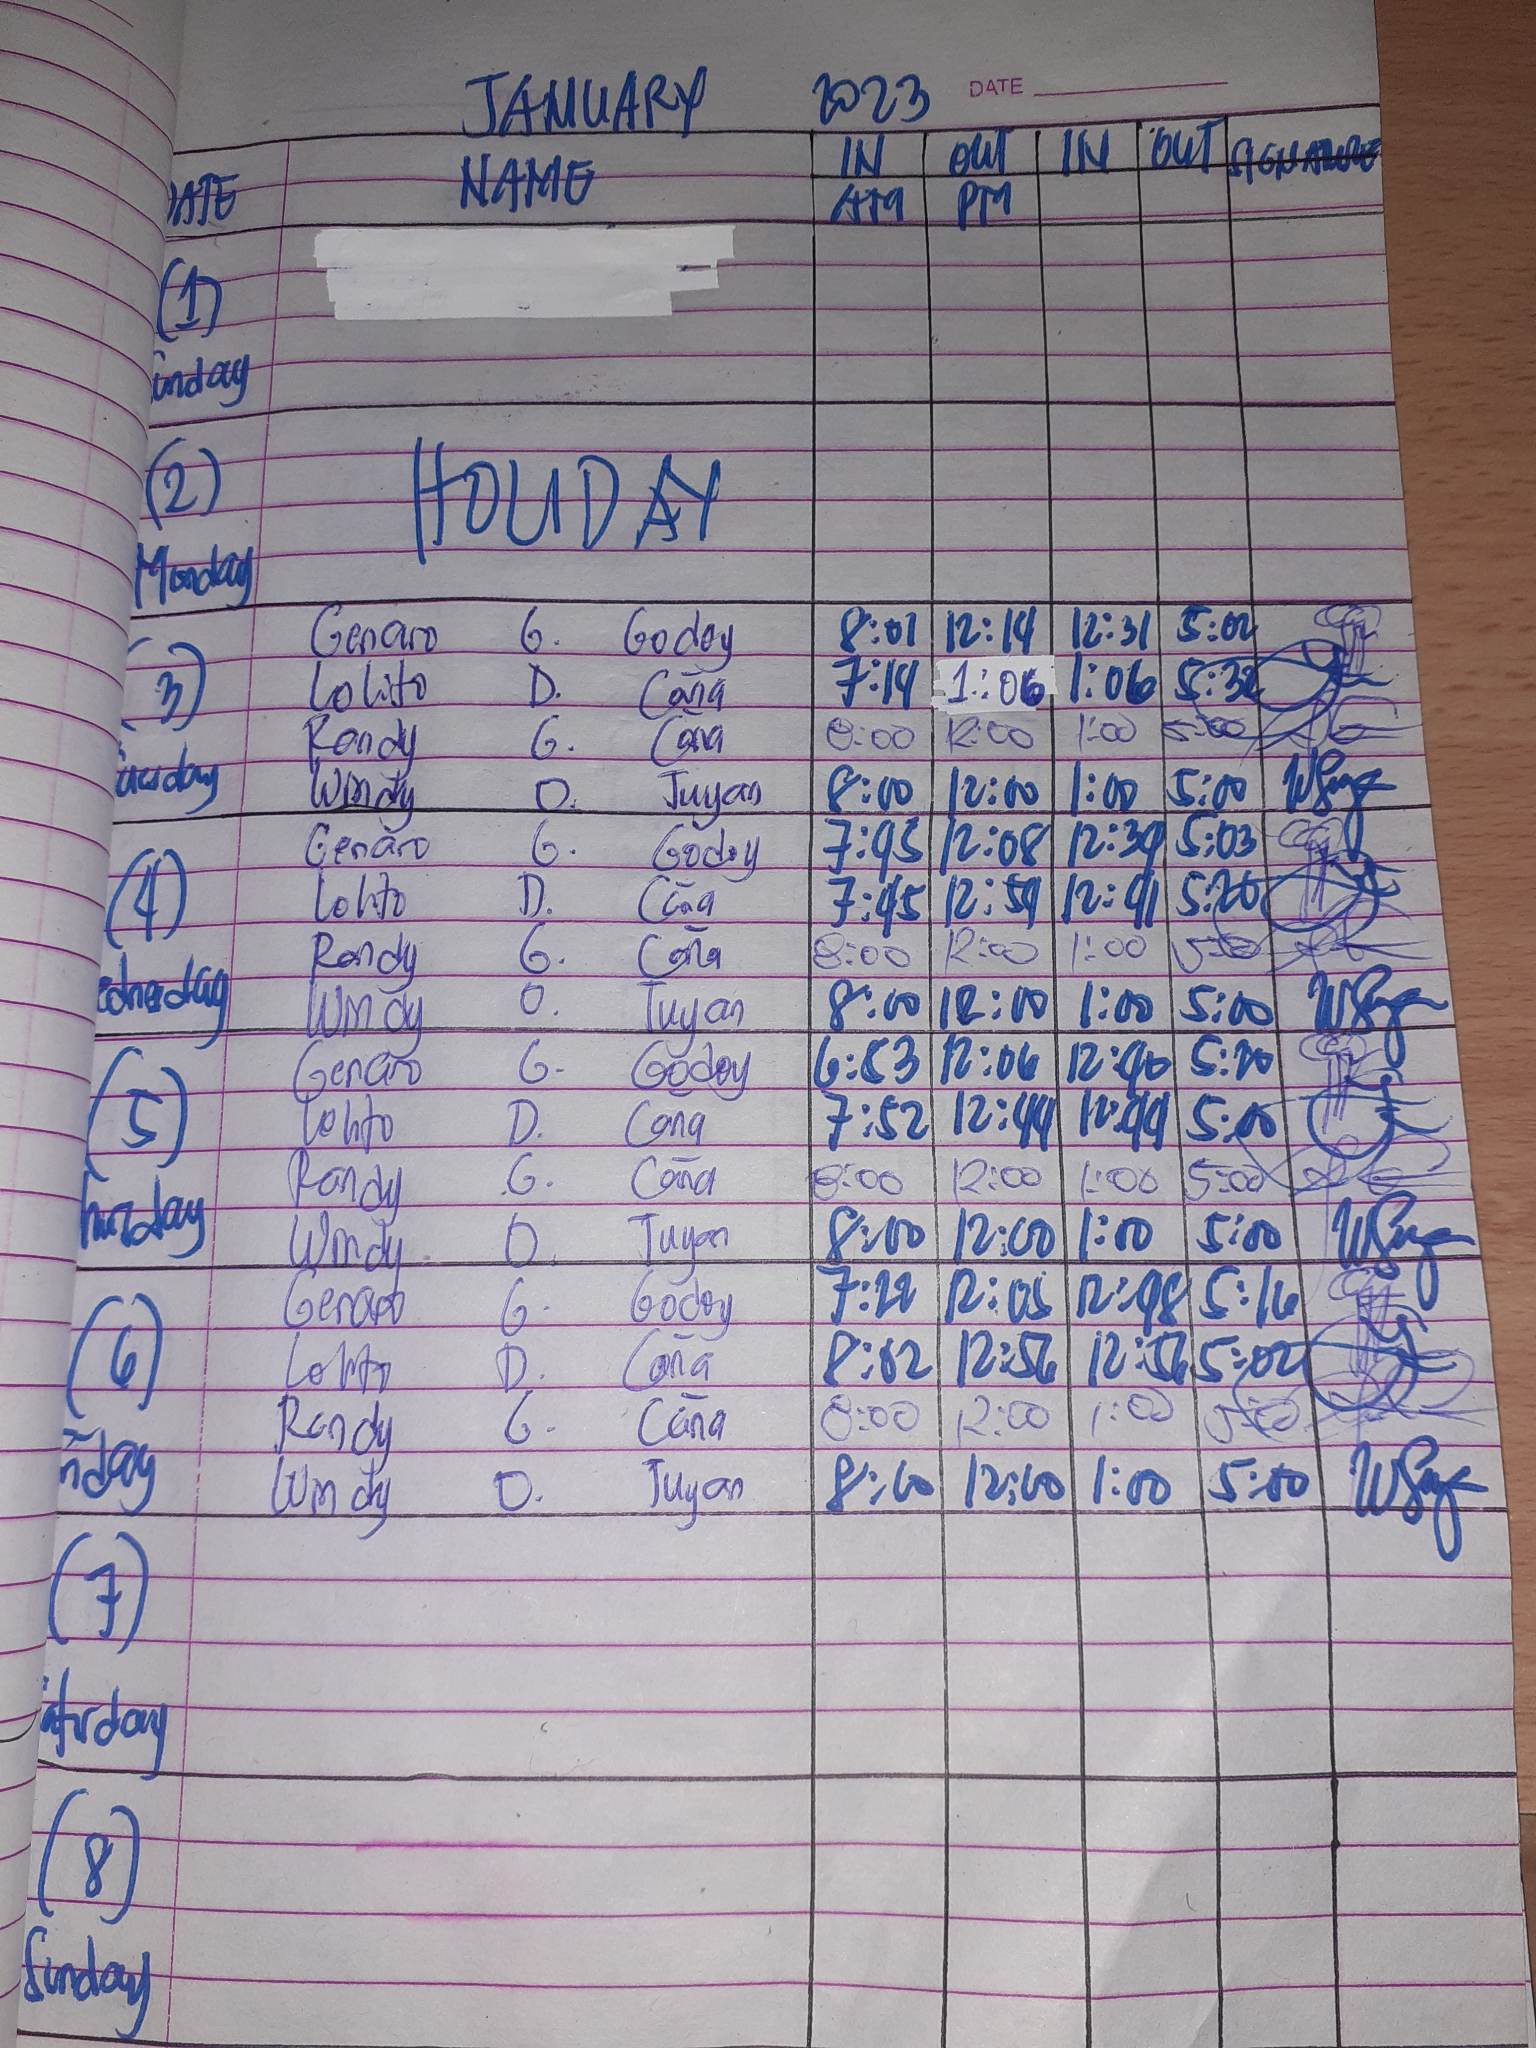 JANUARY 2023 DATE
DATE NAME IN OUT IN OUT SIGNATURE
AM PM
(1)
Sunday
(2) HOLIDAY
Monday
Genaro G. Godoy 8:01 12:14 12:31 5:02
(3) Lolito D. Caña 7:14 1:06 1:06 5:32
Randy G. Caña 8:00 12:00 1:00 5:00
Windy O. Tuyan 8:00 12:00 1:00 5:00
Genaro G. Godoy 7:45 12:08 12:39 5:03
(4) Lolito D. Caña 7:45 12:59 12:41 5:20
Randy G. Caña 8:00 12:00 1:00 5:00
Windy O. Tuyan 8:00 12:00 1:00 5:00
Genaro G. Godoy 6:53 12:06 12:40 5:20
(5) Lolito D. Caña 7:52 12:44 12:44 5:00
Randy G. Caña 8:00 12:00 1:00 5:00
Windy O. Tuyan 8:00 12:00 1:00 5:00
Genaro G. Godoy 7:22 12:05 12:48 5:16
(6) Lolito D. Caña 8:02 12:56 12:56 5:02
Randy G. Caña 8:00 12:00 1:00 5:00
Windy O. Tuyan 8:00 12:00 1:00 5:00
(7)
Saturday
(8)
Sunday